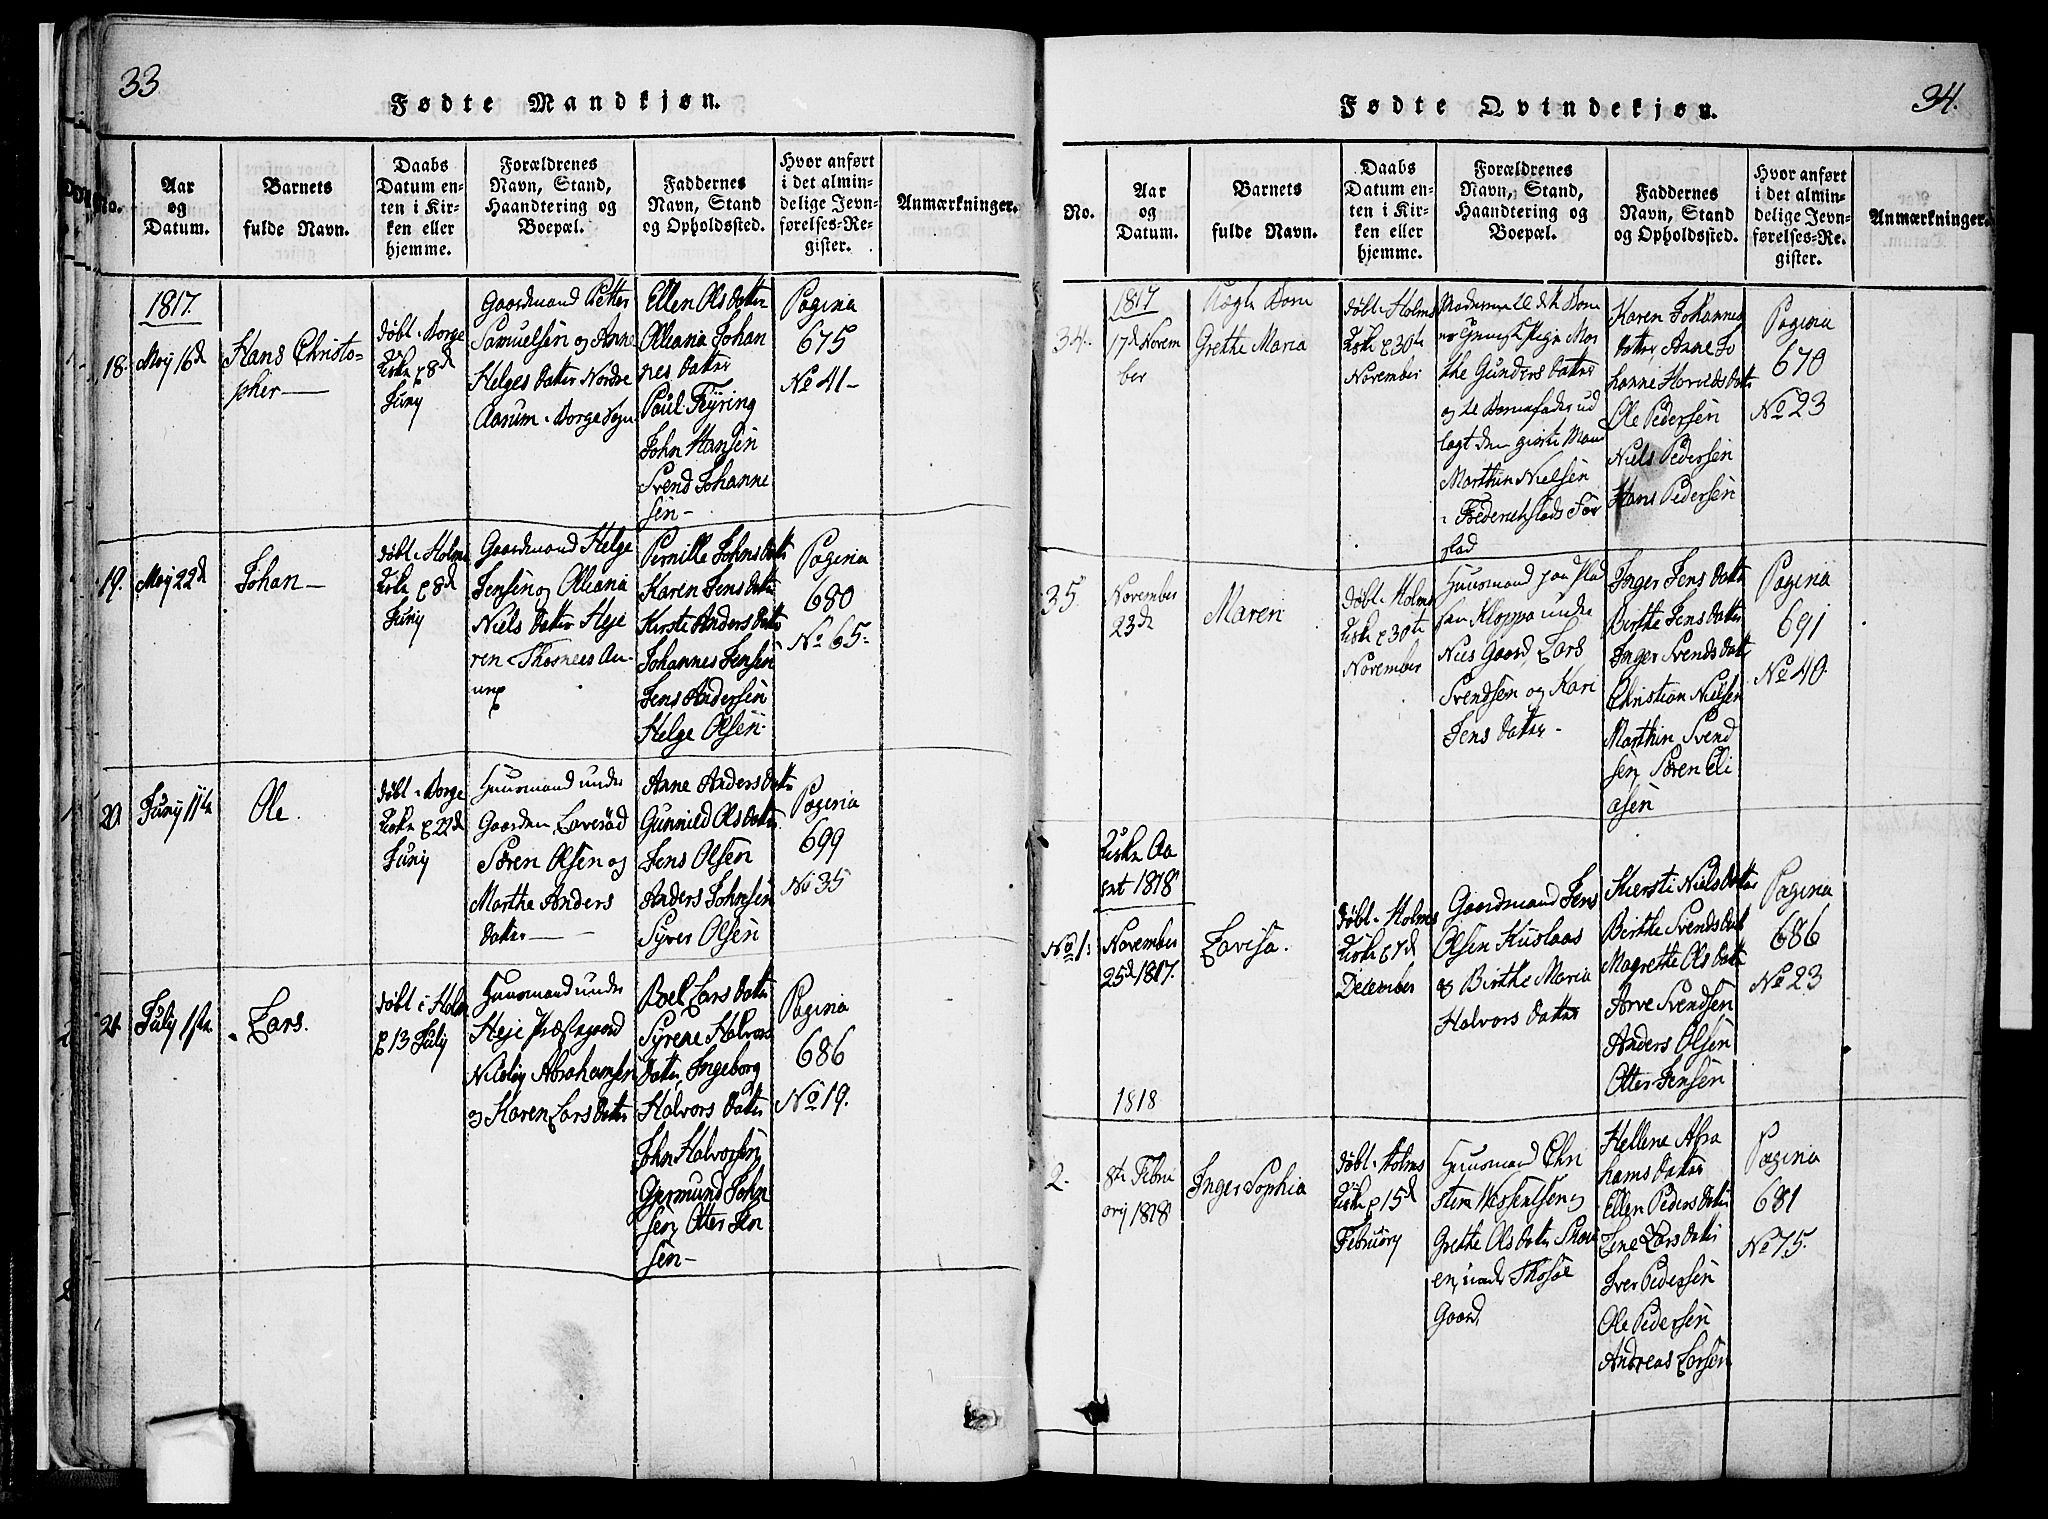 33
Fødte Mandkjøn.
No.
Aar
og
Datum.
Barnets
fulde Navn.
Daabs
Datum en-
ten i Kir-
ken eller
hjemme.
Forældrenes
Navn, Stand,
Haandtering og
Boepæl.
Faddernes
Navn, Stand
og Opholdssted.
Hvor anført
i det almin-
delige Jevn-
førelses-Re-
gister.
Anmærkninger.
1817.
18.
Maj 16d
Hans Christo-
pher
døbt i Borge
Kirke
8d
Junij
Gaardmand Petter
Samuelsen og Anne
Helges datter Nordre
Aarum i Borge Sogn
Ellen Olsdatter
Olleana Johan
nes datter
Paul Feyring
John Hansen
Svend Johanne
sen
Pagina
675
No 41
19.
Maj 22d
Johan
døbt i Holms
Kirke
8d
Junij
Gaardmand Helge
Jensen og Olleana
Niels datter Heje
ren
Pernille Johnsdatter
Karen Jens datter
Kirste Anders datter
Johannes Jensen
Jens Andersen
Helge Olsen
Pagina
680
No 65
20.
Junij 11te
Ole.
døbt i Borge
Kirke
22d
Junij
Huusmand under
Gaarden
Søren Olsen og
Marthe Anders
datter
Anne Anders datter
Gunnild Olsdatter
Jens Olsen
Anders Johnsen
Syver Olsen
Pagina
699
No 35
21.
Julij 1ste
Lars.
døbt i Holm
13 Julij
Huusmand under
Heje Præstegaard
Abrahamsen
og Karen Larsdatter
Boel Lars datter
Syrene Halvors
datter, Ingeborg
Halvors datter
John Halvorsen
Germund John
sen, Otter Jen
sen
Pagina
686
No 19.
34.
Fødte Qvindekjøn.
No.
Aar
og
Datum.
Barnets
fulde Navn.
Daabs
Datum en-
ten i Kir-
ken eller
hjemme.
Forældrenes
Navn, Stand,
Haandtering og
Boepæl.
Faddernes
Navn, Stand
og Opholdssted.
Hvor anført
i det almin-
delige Jevn-
førelses-Re-
gister.
Anmærkninger.
34.
1817
17d Novem
ber
Uægte Barn
Grethe Maria
døbt i Holms
Kirke
30te
November
Moderen
Pige Mar
the Gunders datter
og
Barnefader ud
lagt den givte Mand
Marthin Nielsen
i Fredrichstads For
stad
Karen Johannes
datter Anne Jo
hanne Harvedsdatter
Ole Pedersen
Niels Pedersen
Hans Pedersen
Pagina
670
No 23
35.
November
23d
Maren
døbt i Holms
Kirke
30te
November
Huusmand paa Plad
sen Kloppa under
Nies Gaard, Lars
Svendsen og Kari
Jens datter
Inger Jens datter
Birthe Jens datter
Inger Svendsdatter
Christian Nielsen
Marthin Svend
sen Søren Eli
asen
Pagina
691
No 40.
Kirke Aa
ret 1818
No 1.
November
25d 1817.
Lovisa.
døbt i Holms
Kirke
7d
December
Gaardmand Jens
Olsen Huslaas
& Birthe Maria
Halvors datter
Kiersti Nielsdatter
Birthe Svendsdatter
Magrethe Ols datter
Arve Svendsen
Anders Olsen
Otter Jensen
Pagina
686
No 23
1818
2.
8te Febru
arij 1818
Inger Sophia
døbt i Holms
Kirke
15d
Februarij
Huusmand Chri
Grethe Olsdatter
en, under
Gaard.
Hellene Abra
hams datter
Ellen Peders datter
Jene Larsdatter
Iver Pedersen
Ole Pedersen
Andreas Larsen
Pagina
681
No 75.